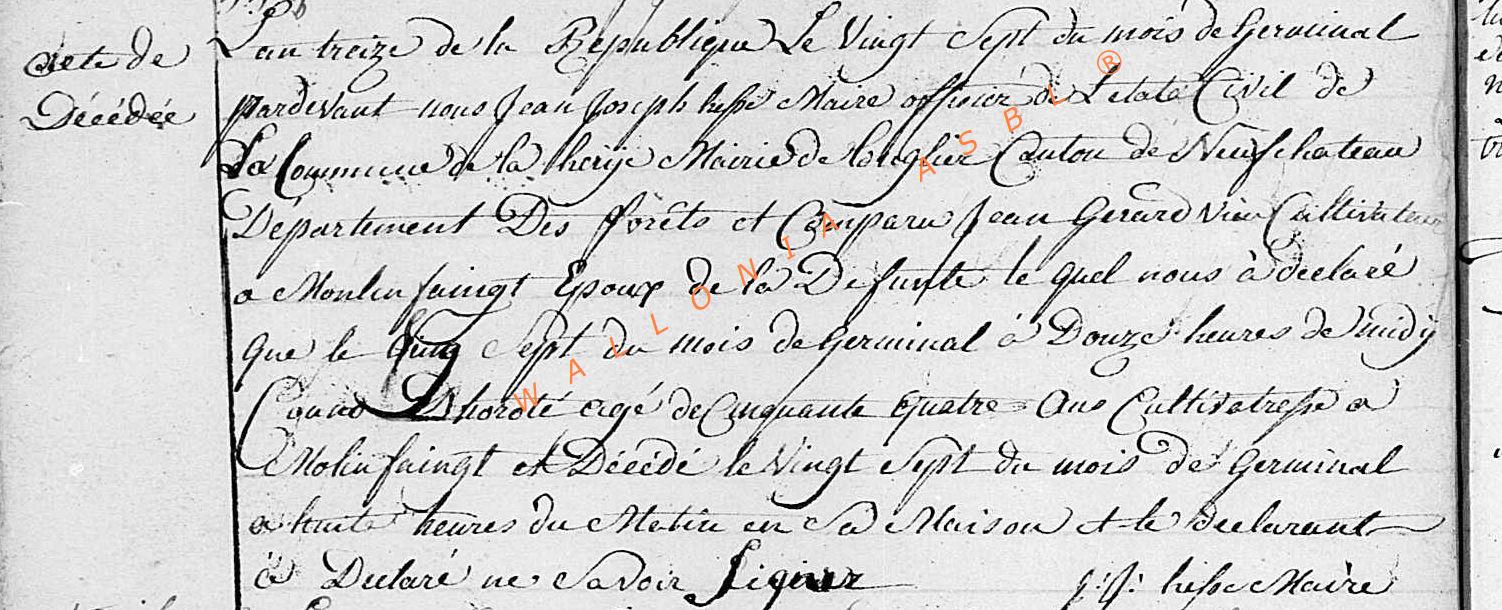 acte de
Décédée
L'an treize de la Republique Le Vingt Sept du mois de Germinal
pardevant nous Jean Joseph hesse Maire officier de Letata Civil de
La Commune de la herije Mairie de longlier Canton de Neufchateau
Département Des forêts et Comparu Jean Gerard Cultivateur
a Monlinfaingt Epoux de la Defunte le quel nous à declaré
que le Sept du mois de Germinal à Douze heures de midÿ
Dhoroté agé de Cinquante quatre Ans Cultivatresse a
Molinfaingt et Décédé le Vingt Sept du mois de Germinal
a huite heures du Matin en Sa Maison et le declarant
à Declaré ne Savoir Signer
j: j: hesse Maire
WALLONIA ASBL ®